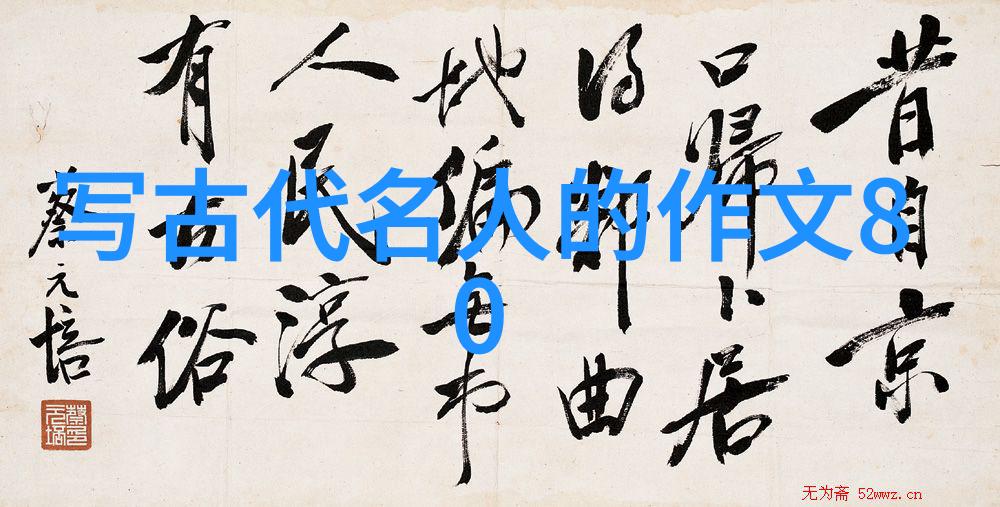 写古代名人的作文8
0
昔自京
口歸卜居
得鄰曲
地偏無市
人民淳
有古俗
蔡元培
无为斋 52wwz.cn